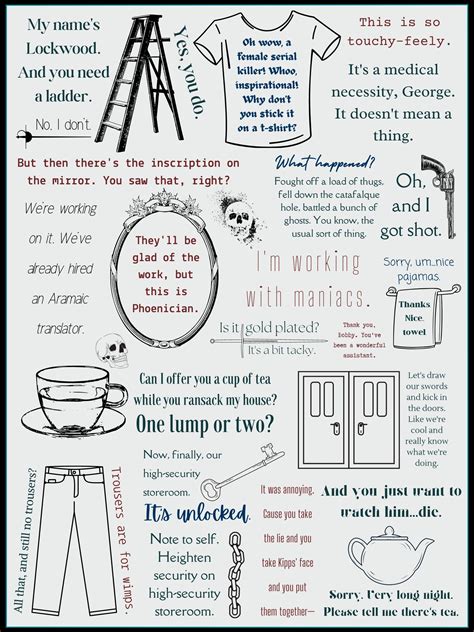 My name's
Lockwood.
And you need
a ladder.
No, I don't.
Yes, you do.
Oh wow, a
female serial
killer! Whoo,
inspirational!
Why don't
you stick it
on a t-shirt?
This is so
touchy-feely.
It's a medical
necessity, George.
It doesn't mean a
thing.
But then there's the inscription on
the mirror. You saw that, right?
We're working
on it. We've
already hired
an Aramaic
translator.
They'll be
glad of the
work, but
this is
Phoenician.
What happened?
Fought off a load of thugs,
fell down the catafalque
hole, battled a bunch of
ghosts. You know, the
usual sort of thing.
Oh,
and I
got shot.
I'm working
with maniacs.
Sorry, um..nice
pajamas.
Thanks
Nice..
towel
Is it gold plated?
It's a bit tacky.
Thank you,
Bobby. You've
been a wonderful
assistant.
Can I offer you a cup of tea
while you ransack my house?
One lump or two?
Let's draw
our swords
and kick in
the doors.
Like we're
cool and
really know
what we're
doing.
Now, finally, our
high-security
storeroom.
It's unlocked.
Note to self.
Heighten
security on
high-security
storeroom.
All that, and still no trousers?
Trousers are for wimps.
It was annoying.
Cause you take
the lie and you
take Kipps' face
and you put
them together—
And you just want to
watch him...die.
Sorry. Very long night.
Please tell me there's tea.